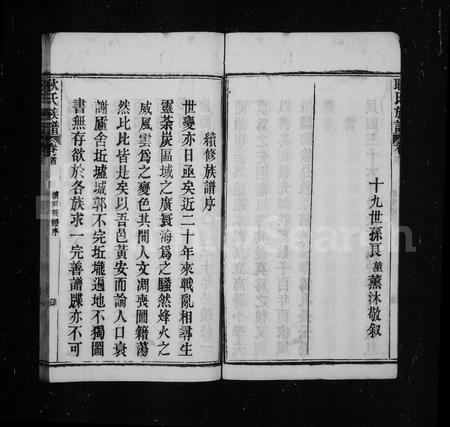 耿氏族譜
卷首
十九世孫良莖薰沐敬叙
續修族譜序
世變亦日亟矣近二十年來戰亂相尋生
靈荼炭區域之廣寰海爲之騷然烽火之
威風雲爲之變色其間人文凋喪圖籍蕩
然比比皆是矣以吾邑黃安而論人口衰
謝廬舍坵墟城郭不完坵壠遍地不獨圖
書無存欲於各族求一完善譜牒亦不可
耿氏族譜
卷首
續修族譜序
肆
FamilySearch